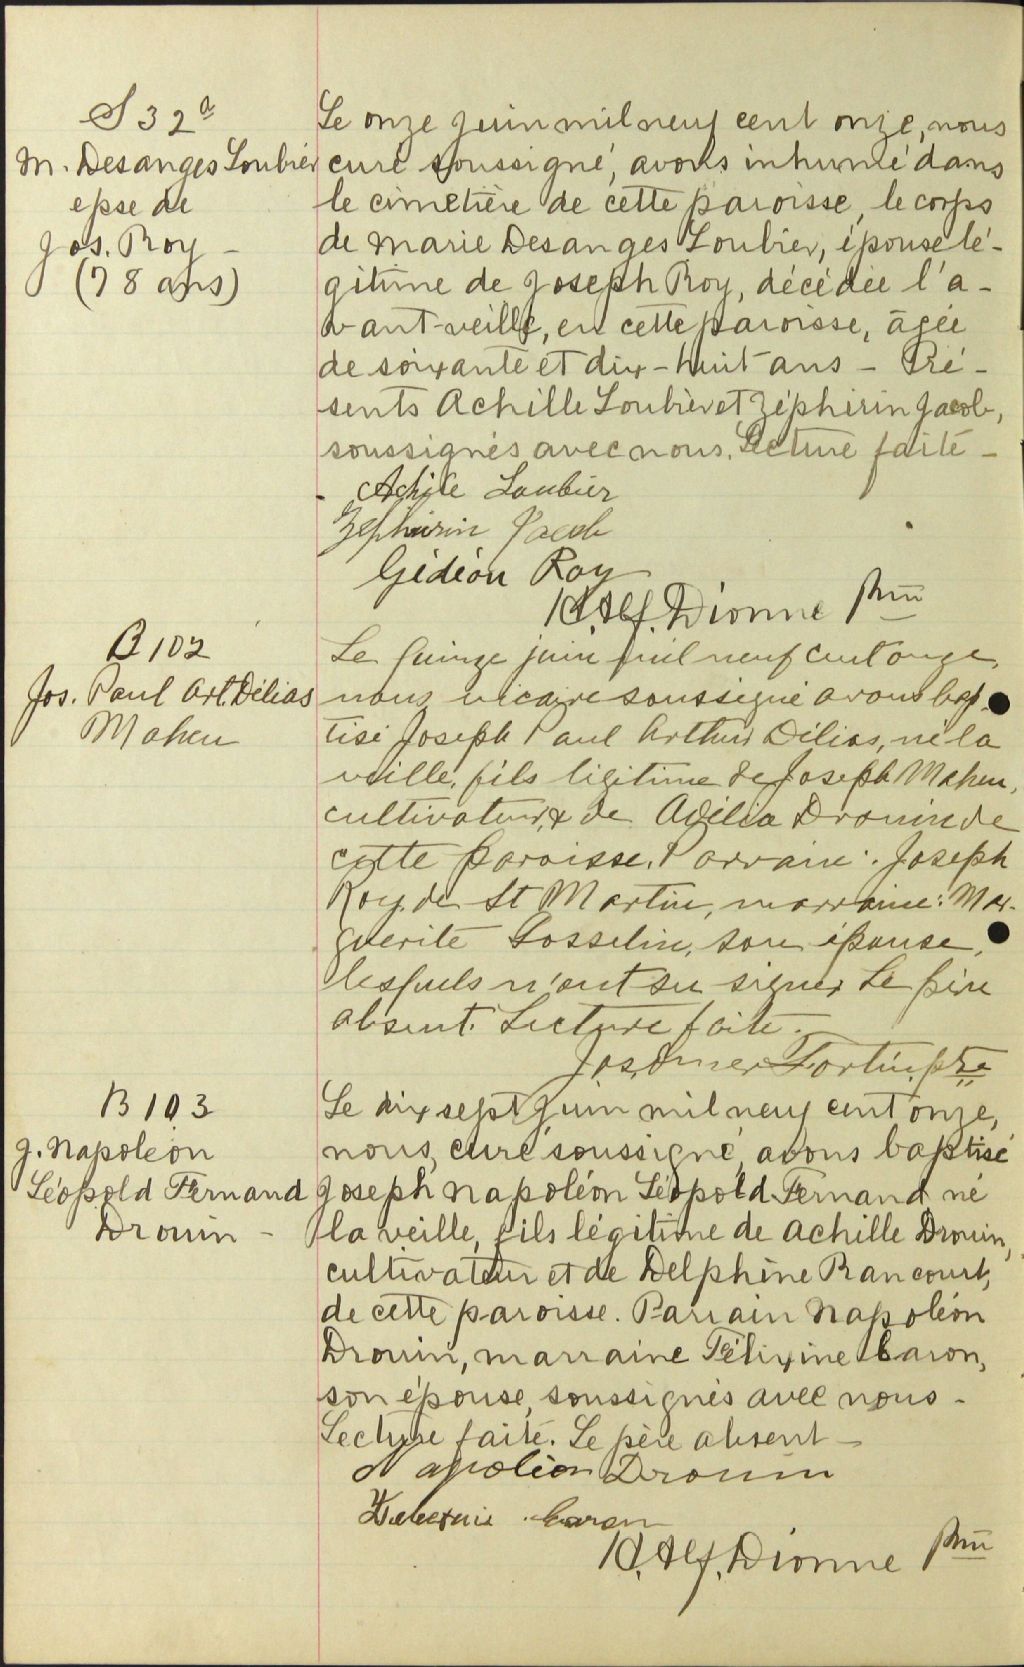 S 32a
M. Desanges Loubier
epse de
Jos. Roy -
(78 ans)
Le onze juin mil neuf cent onze, nous
curé soussigné, avons inhumé dans
le cimetière de cette paroisse, le corps
de Marie Desanges Loubier, épouse lé-
gitime de Joseph Roy, décédée l'a-
vant-veille, en cette paroisse, âgée
de soixante et dix-huit ans - Pré-
sents Achille Loubier et Zéphirin Jacob,
soussignés avec nous. Lecture faite -
Achile Loubier
Zephirin Jacob
Gédéon Roy
Alf. Dionne Ptre
B 102
Jos. Paul Art. Délias
Maheu
Le quinze juin mil neuf cent onze,
nous vicaire soussigné avons bap-
tisé Joseph Paul Arthur Délias, né la
veille, fils légitime de Joseph Maheu,
cultivateur, & de Adélia Drouin de
cette paroisse. Parrain: Joseph
Roy, de St Martin, marraine: Mar-
guerite Gosselin, son épouse,
lesquels n'ont su signer. Le père
absent. Lecture faite.
Jos. Omer Fortin, ptre
B 103
J. Napoléon
Léopold Fernand
Drouin -
Le dix sept juin mil neuf cent onze,
nous, curé soussigné, avons baptisé
Joseph Napoléon Léopold Fernand né
la veille, fils légitime de Achille Drouin,
cultivateur et de Delphine Rancourt,
de cette paroisse. Parrain Napoléon
Drouin, marraine Félixine Caron,
son épouse, soussignés avec nous -
Lecture faite. Le père absent -
Napoléon Drouin
Caron
Alf. Dionne Ptre